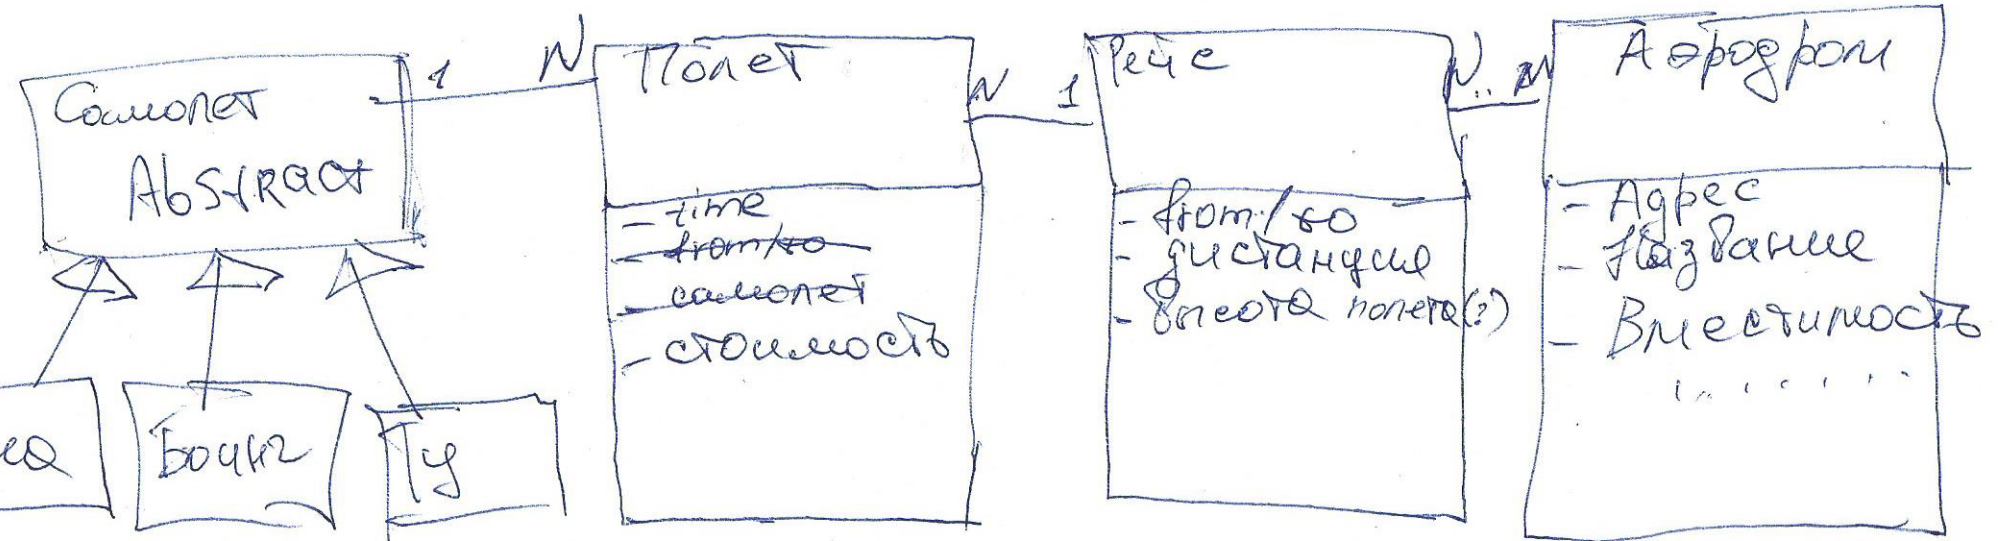 Самолет
Abstract
1
N
Полет
- time
- from/to
- самолет
- стоимость
N
1
Рейс
- from/to
- дистанция
- высота полета(?)
N..
Аэродром
- Адрес
- Название
- Вместимость
.......
Боинг
Ту